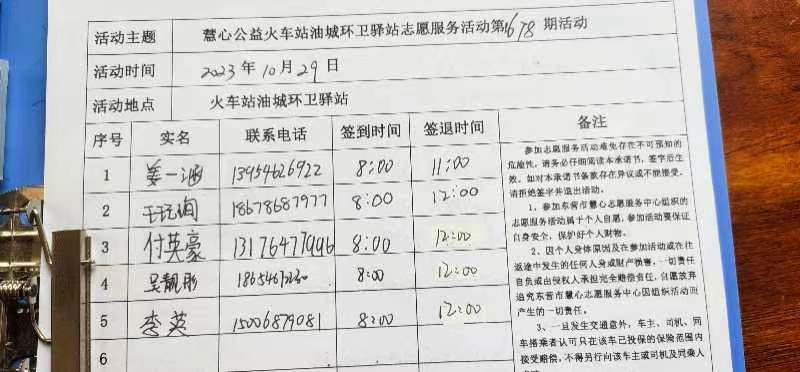 活动主题 慧心公益火车站油城环卫驿站志愿服务活动第1678期活动
活动时间 2023年10月29日
活动地点 火车站油城环卫驿站
序号 实名 联系电话 签到时间 签退时间 备注
1 姜一涵 13954626922 8:00 11:00
2 18678687977 8:00 12:00
3 付英豪 13176477996 8:00 12:00
4 吴靓彤 8:00 12:00
5 李英 15006879081 8:00 12:00
6
参加志愿服务活动难免存在不可预知的
危险性,请务必仔细阅读本承诺书,签字后生
效。如对本承诺书条款存在异议或不能接受,
请拒绝签字并退出活动。
1、参加东营市慧心志愿服务中心组织的
志愿服务活动属于个人自愿,参加活动要保证
自身安全,保护好个人财物。
2、因个人身体原因及在参加活动或在往
返途中发生的任何人身或财产损害,一切责任
自负或由侵权人承担完全赔偿责任,自愿放弃
追究东营市慧心志愿服务中心因组织活动而
产生的一切责任。
3、一旦发生交通意外,车主、司机、同
车搭乘者认可只在该车已投保的保险范围内
接受赔偿,不得另行向该车主或司机及同乘人